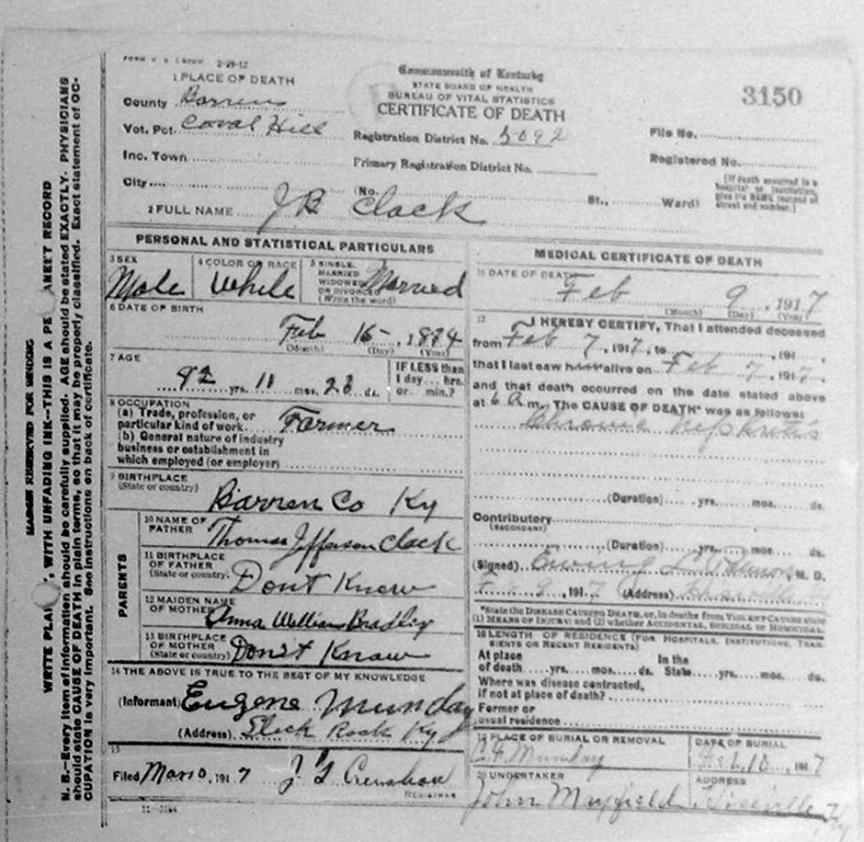 2-29-12
Commonwealth of Kentucky
STATE BOARD OF HEALTH
BUREAU OF VITAL STATISTICS
CERTIFICATE OF DEATH
3150
1 PLACE OF DEATH
County Barren
Vot. Pct. Coral Hill
Inc. Town
City
Registration District No. 5092
Primary Registration District No.
(No. St., Ward)
File No.
Registered No.
[If death occurred in a
hospital or institution,
give its NAME instead of
street and number.]
2 FULL NAME J B Clack
PERSONAL AND STATISTICAL PARTICULARS
3 SEX
Male
4 COLOR OR RACE
White
5 SINGLE,
MARRIED
WIDOWED
OR DIVORCED
(Write the word)
Married
6 DATE OF BIRTH
Feb 15, 1824
(Month) (Day) (Year)
7 AGE
92 yrs. 11 mos. 23 ds.
IF LESS than
1 day... hrs.
or... min.?
8 OCCUPATION
(a) Trade, profession, or
particular kind of work Farmer
(b) General nature of industry
business or establishment in
which employed (or employer)
9 BIRTHPLACE
(State or country)
Barren Co Ky
PARENTS
10 NAME OF
FATHER
Thomas Jefferson Clack
11 BIRTHPLACE
OF FATHER
(State or country)
Dont Know
12 MAIDEN NAME
OF MOTHER
Anna Williams Bradley
13 BIRTHPLACE
OF MOTHER
(State or country)
Don't Know
14 THE ABOVE IS TRUE TO THE BEST OF MY KNOWLEDGE
(Informant) Eugene Munday
(Address) Slick Rock Ky
15
Filed Mar 10, 1917 Crenshaw
REGISTRAR
11-3184
MEDICAL CERTIFICATE OF DEATH
16 DATE OF DEATH
Feb 9, 1917
(Month) (Day) (Year)
17 I HEREBY CERTIFY, That I attended deceased
from Feb 7, 1917, to , 191 ,
that I last saw h alive on Feb 7, 1917,
and that death occurred on the date stated above
at 6 a m. The CAUSE OF DEATH* was as follows:
Chronic Nephritis
(Duration) yrs. mos. ds.
Contributory
(SECONDARY)
(Duration) yrs. mos. ds.
(Signed) Ewing M. D.
9, 1917 (Address)
*State the DISEASE CAUSING DEATH, or, in deaths from VIOLENT CAUSES state
(1) MEANS OF INJURY; and (2) whether ACCIDENTAL, SUICIDAL or HOMICIDAL.
18 LENGTH OF RESIDENCE (FOR HOSPITALS, INSTITUTIONS, TRAN-
SIENTS OR RECENT RESIDENTS)
At place
of death yrs. mos. ds.
In the
State yrs. mos. ds.
Where was disease contracted,
if not at place of death?
Former or
usual residence
19 PLACE OF BURIAL OR REMOVAL
Munday
DATE OF BURIAL
Feb 10, 1917
20 UNDERTAKER
John Mayfield
ADDRESS
Hiseville, Ky
MARGIN RESERVED FOR BINDING
WRITE PLAI , WITH UNFADING INK--THIS IS A PE ANENT RECORD
N. B.--Every item of information should be carefully supplied. AGE should be stated EXACTLY. PHYSICIANS
should state CAUSE OF DEATH in plain terms, so that it may be properly classified. Exact statement of OC-
CUPATION is very important. See instructions on back of certificate.